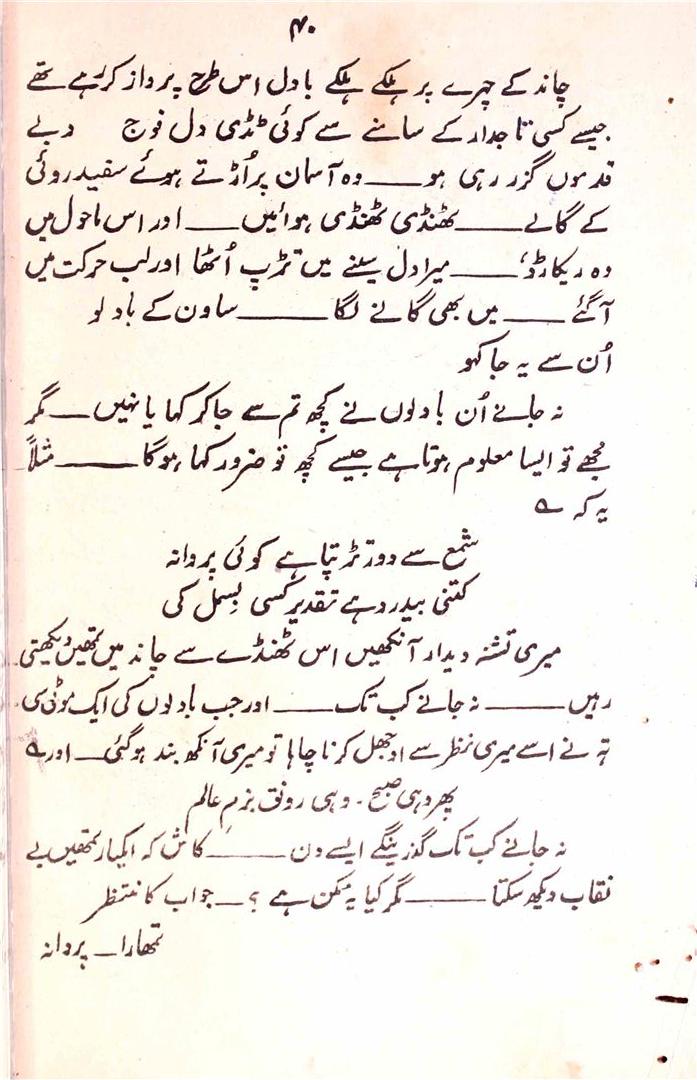 ۴۰
چاند کے چہرے پر ہلکے ہلکے بادل اس طرح پرواز کر رہے تھے
جیسے کسی تاجدار کے سامنے سے کوئی ٹڈی دل فوج دبے
قدموں گزر رہی ہو ــــ وہ آسمان پر اُڑتے ہوئے سفید روئی
کے گالے ــــ ٹھنڈی ٹھنڈی ہوائیں ــــ اور اس ماحول میں
وہ ریکارڈ؛ ــــ میرا دل سینے میں تڑپ اُٹھا اور لب حرکت میں
آگئے ــــ میں بھی گانے لگا ــــ ساون کے بادلو
اُن سے یہ جا کہو
نہ جانے اُن بادلوں نے کچھ تم سے جا کر کہا یا نہیں ــــ مگر
مجھے تو ایسا معلوم ہوتا ہے جیسے کچھ تو ضرور کہا ہوگا ــــ مثلاً
یہ کہ ؎
شمع سے دور تڑپتا ہے کوئی پروانہ
کتنی بیدرد ہے تقدیر کسی بسمل کی
میری تشنہ دیدار آنکھیں اس ٹھنڈے سے چاند میں تمھیں دیکھتی
رہیں ــــ نہ جانے کب تک ــــ اور جب بادلوں کی ایک موٹی سی
تہ نے اسے میری نظر سے اوجھل کرنا چاہا تو میری آنکھ بند ہوگئی ــــ اور ؎
پھر وہی صبح ۔ وہی رونق بزمِ عالم
نہ جانے کب تک گذرینگے ایسے دن ــــ کاش کہ ایکبار تمھیں بے
نقاب دیکھ سکتا ــــ مگر کیا یہ ممکن ہے ؟ ــــ جواب کا منتظر
تمھارا ــ پروانہ